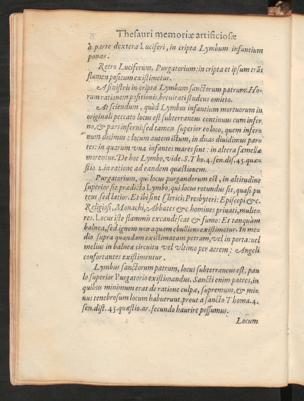 Thesauri memoriæ artificiosæ
à parte dextera Luciferi, in cripta Lymbum infantium
ponas.
Retro Luciferum, Purgatorium; in cripta et ipsum trãs
flumen positum existimetur.
A sinistris in cripta Lymbum sanctorum patrum. Ho-
rum rationem positionis, brevitati studens omitto.
At sciendum, quòd Lymbus infantium mortuorum in
originali peccato locus est subterraneus continuus cum infer-
no, & pars inferni: sed tamen superior eo loco, quem infer-
num dicimus: locum autem istum, in duas dividimus par-
tes: in quarum una infantes mares sint: in altera fœmellæ
morentur. De hoc Lymbo, vide. S. Tho. 4. sen. dis. 45. quæ-
stio. 1. in ratione ad eandem quæstionem.
Purgatorium, qui locus purgandorum est, in altitudine
superior sit prædicto Lymbo; qui locus rotundus sit, quasi pu-
teus sed latior. Et ibi sint Clerici, Presbyteri; Episcopi &c.
Religiosi, Monachi, & Abbates &c. homines privati, mulie-
res. Locus iste flammis excandescat & fumo: Et tanquam
balnea, sed ignem non aquam ebulliens existimetur. In me-
dio supra quandam existimatam petram, vel in porta: vel
melius in balneæ circuitu vel ultimo per aerem; Angeli
consortantes existimentur.
Lymbus sanctorum patrum, locus subterraneus est, pau
lo superior Purgatorio existimandus. Sancti enim patres, in
quibus minimum erat de ratione culpæ, supremum, & mi-
nus tenebrosum locum habuerunt. prout à sancto Thoma. 4.
sen. dist. 45. quæstio. ar. secundo haurire possumus.
Locum